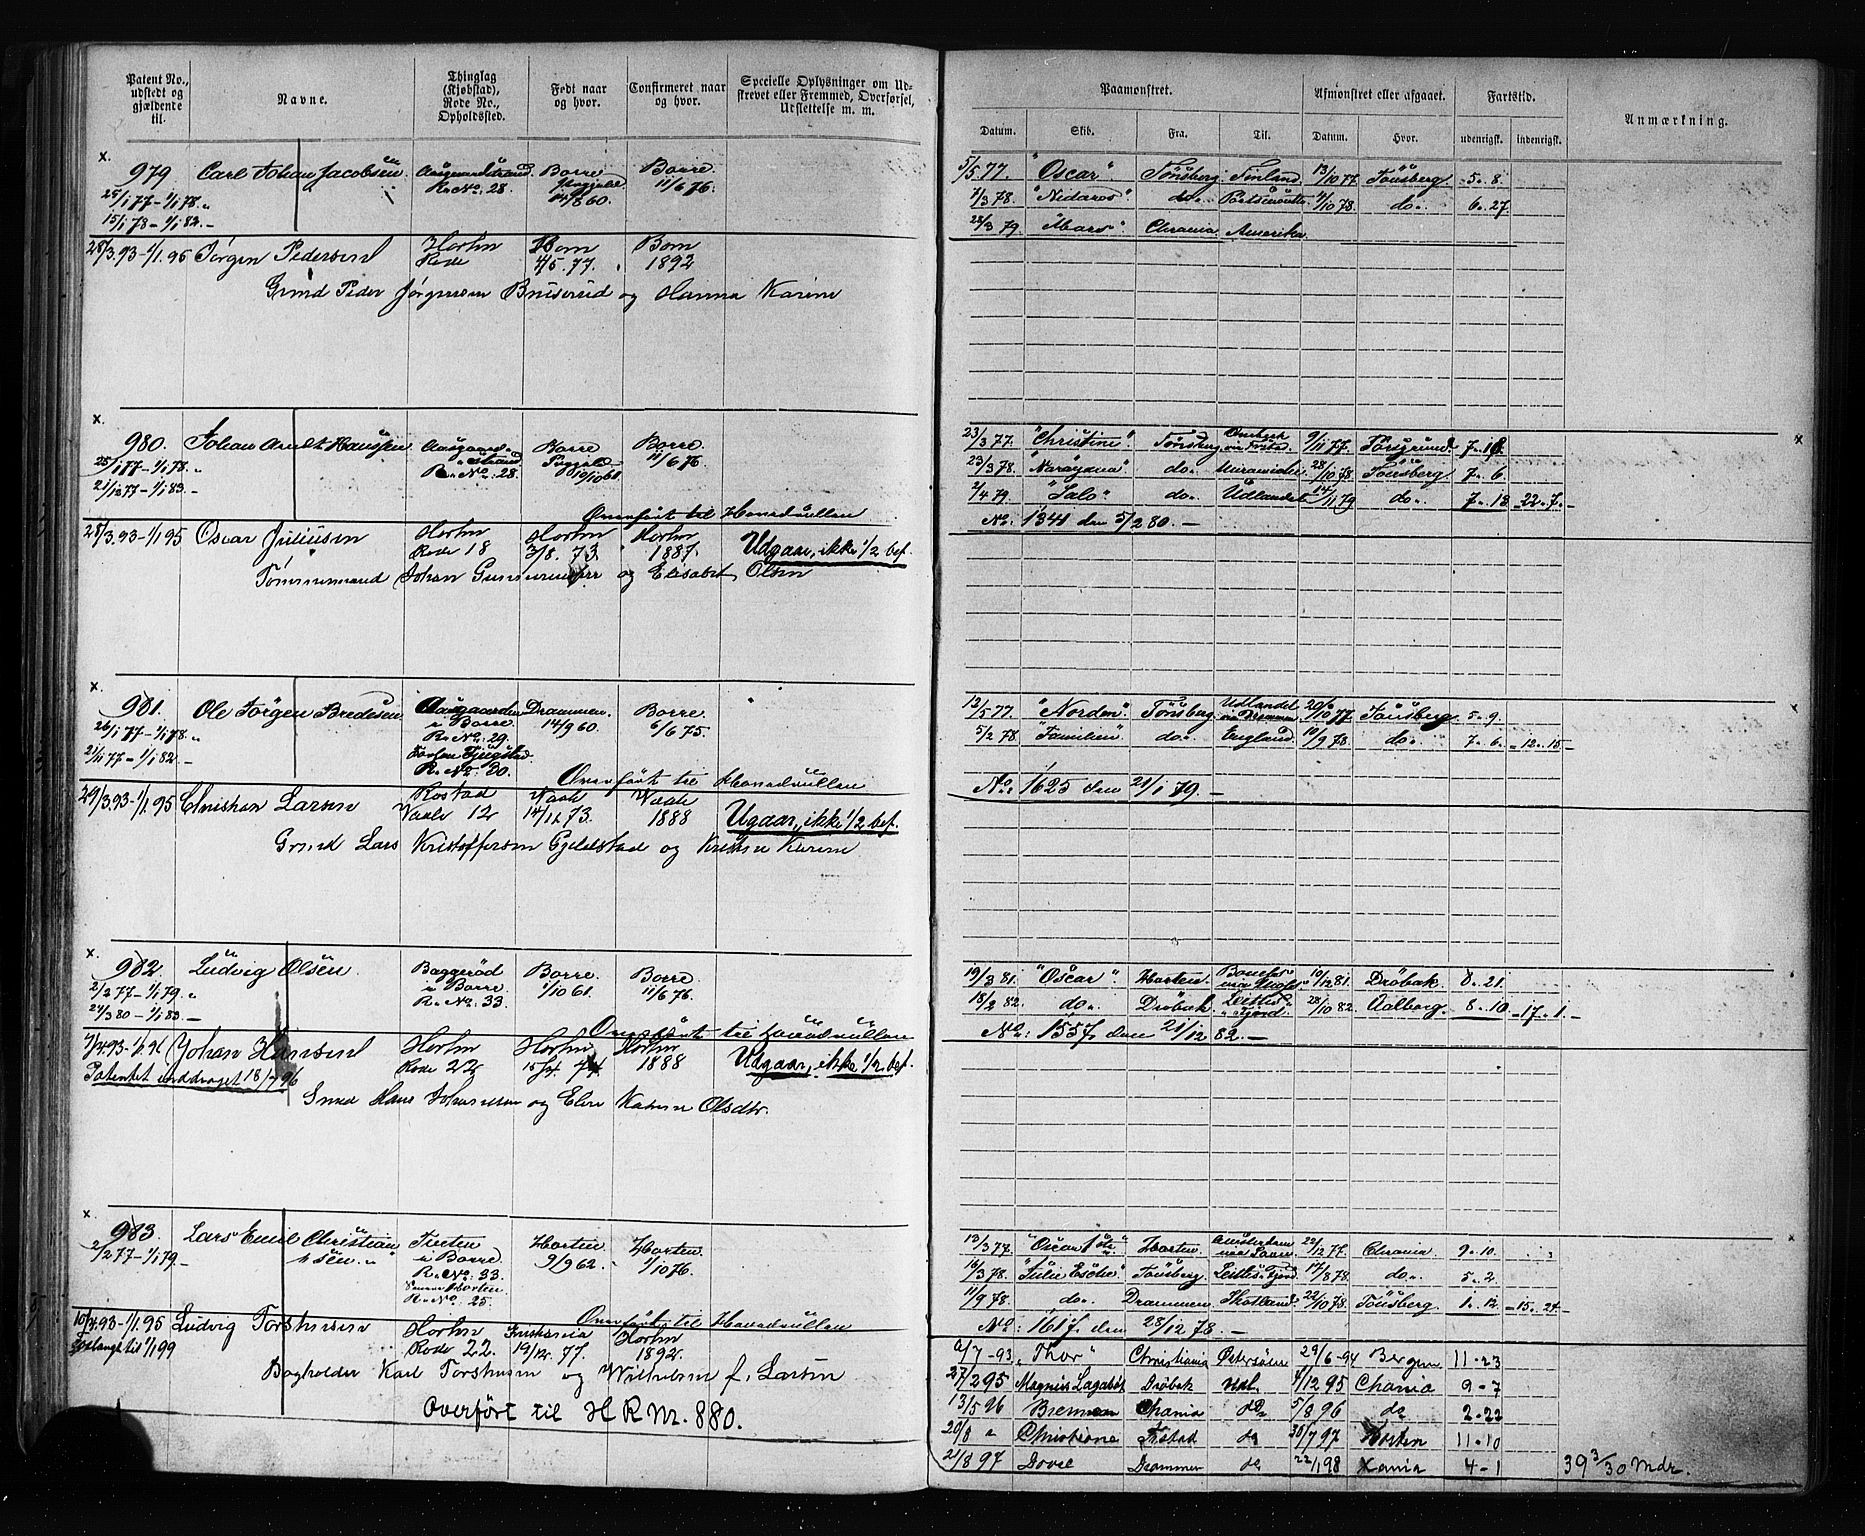 Patent No., udstedt og gjældende til.
Navne.
Thinglag (Kjøbstad), Rode No., Opholdssted.
Født naar og hvor.
Confirmeret naar og hvor.
Specielle Oplysninger om Udskrevet eller Fremmed, Overførsel, Udslettelse m. m.
Paamønstret.
Afmønstret eller afgaaet.
Fartstid.
Anmærkning.
Datum. Skib. Fra. Til. Datum. Hvor. udenrigsk. indenrigsk.
x.
979 Carl Johan Jacobsen Aasgaardstrand Borre Borre
R. No. 28. 11/6 76.
25/1 77 - 1/1 78. 14/8 60.
15/1 78 - 1/1 82. -
5/5 77. "Oscar" Tönsberg Finland 13/10 77. Tönsberg. 5. 8.
7/3 78. "Nidaros" do. 4/10 78. do. 6. 27
28/3 79. "Mars" Chrania Amerika
28/3.93 - 1/1.95 Jørgen Pedersen Horten Borre Borre
Rode 4/5. 77. 1892
Gmd Peder Jørgensen Bruserud og Hanna Karine
x.
980. Johan Arndt Hansen Aasgaardstrand Borre Borre
R. No. 28. 19/10 61 11/6 76.
25/1 77 - 1/1 78.
21/12 77 - 1/1 83. -
23/3 77. "Christine" Tönsberg 9/11 77. Porsgrund. 7. 16.
23/3 78. "Narayana" do. 28/10 78. Tönsberg 7. 6
2/4 79. "Salo" do. Udlandet 14/11 79 do. 7. 18 22. 7. -
Overført til Hovedrullen
No. 1341 den 5/2 80. -
28/3.93 - 1/1 95 Oscar Juliusen Horten Horten Horten
Rode 18 3/8. 73. 1887. Udgaar, ikke 1/2 bef.
Tømmermand Johan Gundersen og Elisabet Olsen
x.
981. Ole Jörgen Bredesen Aasgaarden Drammen. Borre.
i Borre 14/9 60. 6/6 75.
R. No. 29.
26/1 77 - 1/1 78.
21/11 77 - 1/1 82. -
R. No. 30.
12/5 77. "Norden" Tönsberg Udlandet 20/10 77. Tönsberg 5. 9.
5/2 78. "Familien" do. England. 10/9 78 do. 7. 6. - 12. 15 -
Overført til Hovedrullen
No. 1625 den 21/1 79. -
29/3.93 - 1/1.95 Christian Larsen Rostad Vaale Vaale
Vaale 12 14/11.73. 1888 Ugaar, ikke 1/2 bef.
Gmd Lars Kristoffersen Gjelstad og Kristine Karine
x.
982. Ludvig Olsen. Baggeröd Borre. Borre
i Borre 1/10 61. 11/6 76.
R. No. 33.
2/2 77 - 1/1 79.
24/3 80 - 1/1 83. -
19/3 81. "Oscar" Horten. 10/12 81. Dröbak. 8. 21.
18/2 82. do. Dröbak 28/10 82. Aalborg. 8. 10 - 17. 1. -
Overført til Hovedrullen
No. 1557. den 21/12 82. -
7/4.93 - 1/1.96 Johan Hansen Horten Horten Horten
Rode 22 15/4. 74 1888 Udgaar, ikke 1/2 bef.
Patentet inddraget 18/7 96
Smed Hans Johansen og Eline Katrine Olsdtr.
x.
983. Lars Emil Christiansen. Horten Horten.
i Borre 9/9 62. 1/10 76.
R. No. 33.
2/2 77 - 1/1 79. -
Horten
R. No. 25.
13/3 77. "Oscar 1ste" Horten. Amsterdam 22/12 77. Chrania 9. 10.
16/3 78. "Julie Esche" Tönsberg. Leitts Fjord. 17/8 78. do. 5. 2
11/9 78. do. Drammen Skotland 22/10 78. Tönsberg. 1. 12 - 15. 24 -
Overført til Hovedrullen
No. 1617. den 28/12 78. -
10/4.93 - 1/1.95 Ludvig Torstensen Horten Kristiania Horten
Rode 22. 19/12. 77. 1892.
Forlænget til 1/1 99
Bogholder Karl Torstensen og Wilhelmine f. Larsen
Overført til H R Nr. 880.
2/7 - 93. "Thor" Christiania Østersøen 29/6 - 94 Bergen 11 - 23
27/2 95 Magnus Lagabøt Drøbak Udl. 4/12 95 Chania 9 - 7
13/5 96 Bremen Chania do 5/8 96 do 2 - 22
20/8 " Christiane Frstad do 30/7 97 Horten 11 - 10
21/8 97 Dovre Drammen do 22/1 98 Xania 4 - 1 39 3/30 Mdr.